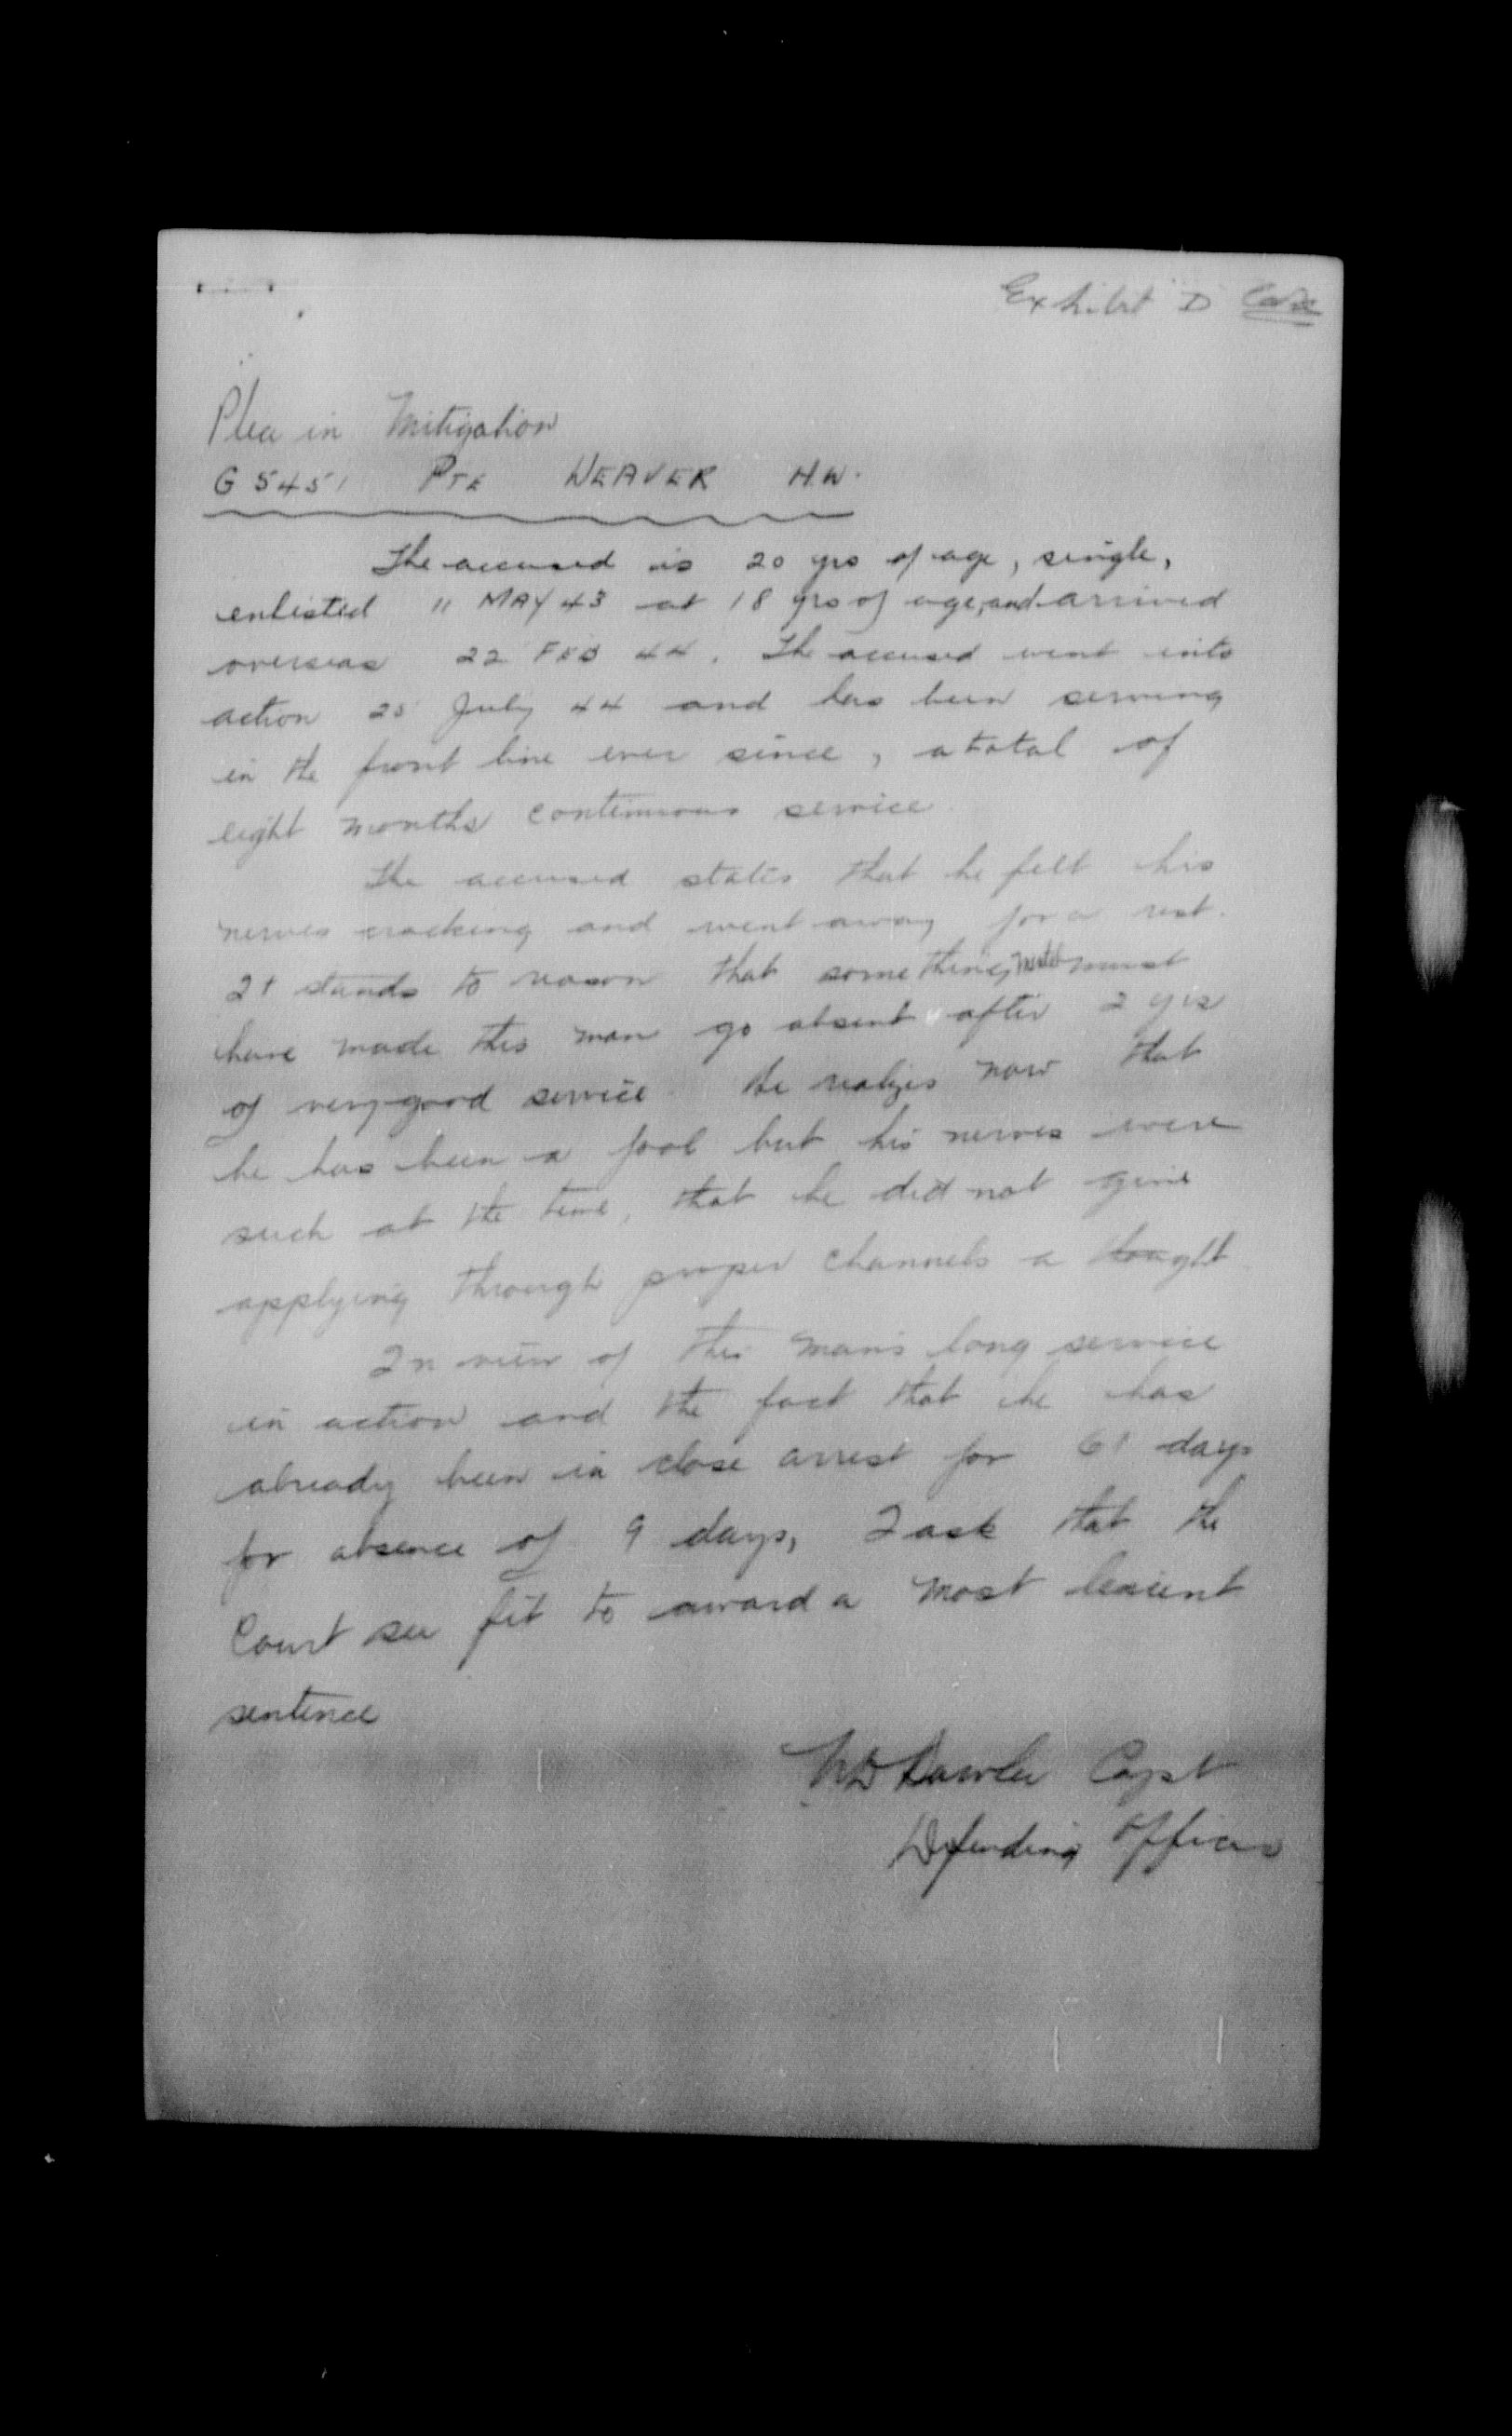 Exhibit D
Plea in Mitigation
G 5451 PTE WEAVER H.W.
The accused is 20 yrs of age, single,
enlisted 11 MAY 43 at 18 yrs of age, and arrived
overseas 22 FEB 44. The accused went into
action 25 July 44 and has been serving
in the front line ever since, a total of
eight months continuous service.
The accused states that he felt his
nerves cracking and went away for a rest.
It stands to reason that something must
have made this man go absent after 2 yrs
of very good service. He realizes now that
he has been a fool but his nerves were
such at the time, that he did not give
applying through proper channels a thought
In view of this man's long service
in action and the fact that he has
already been in close arrest for 61 days
for absence of 9 days, I ask that the
Court see fit to award a most lenient
sentence
Capt
Defending Officer